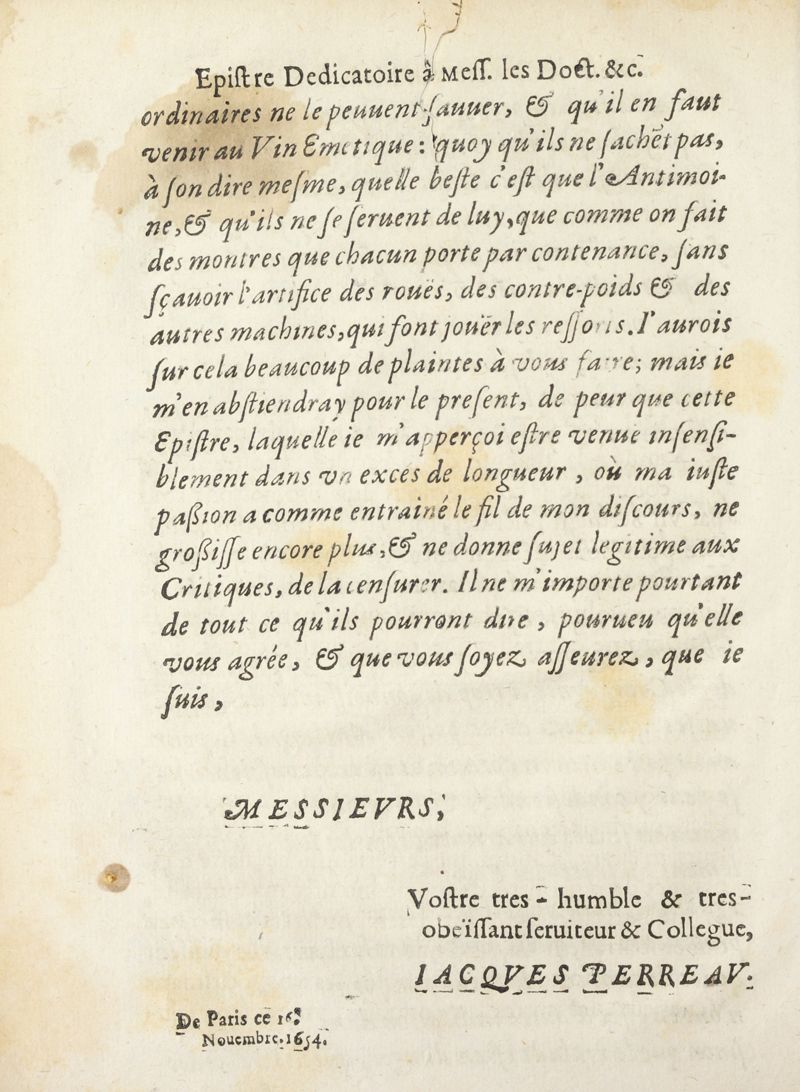 Epiſtre Dedicatoire à Meſſ. les Doct. &c.
ordinaires ne le peuuent ſauuer, & qu'il en faut
venir au Vin Emetique: quoy qu'ils ne ſachēt pas,
à ſon dire meſme, quelle beſte c'eſt que l'Antimoi-
ne, & qu'ils ne ſe ſeruent de luy, que comme on fait
des montres que chacun porte par contenance, ſans
ſçauoir l'artifice des rouës, des contre-poids & des
autres machines, qui font jouër les reſſorts. I'aurois
ſur cela beaucoup de plaintes à vous faire; mais ie
m'en abſtiendray pour le preſent, de peur que cette
Epiſtre, laquelle ie m'apperçoi eſtre venue inſenſi-
blement dans vn exces de longueur, où ma iuſte
paßion a comme entrainé le fil de mon diſcours, ne
großiſſe encore plus, & ne donne ſujet legitime aux
Critiques, de la cenſurer. Il ne m'importe pourtant
de tout ce qu'ils pourront dire, pourueu qu'elle
vous agrée, & que vous ſoyez aſſeurez, que ie
ſuis,
MESSIEVRS,
Voſtre tres-humble & tres-
obeïſſant ſeruiteur & Collegue,
IACQVES PERREAV.
De Paris ce 16.
Nouembre. 1654.